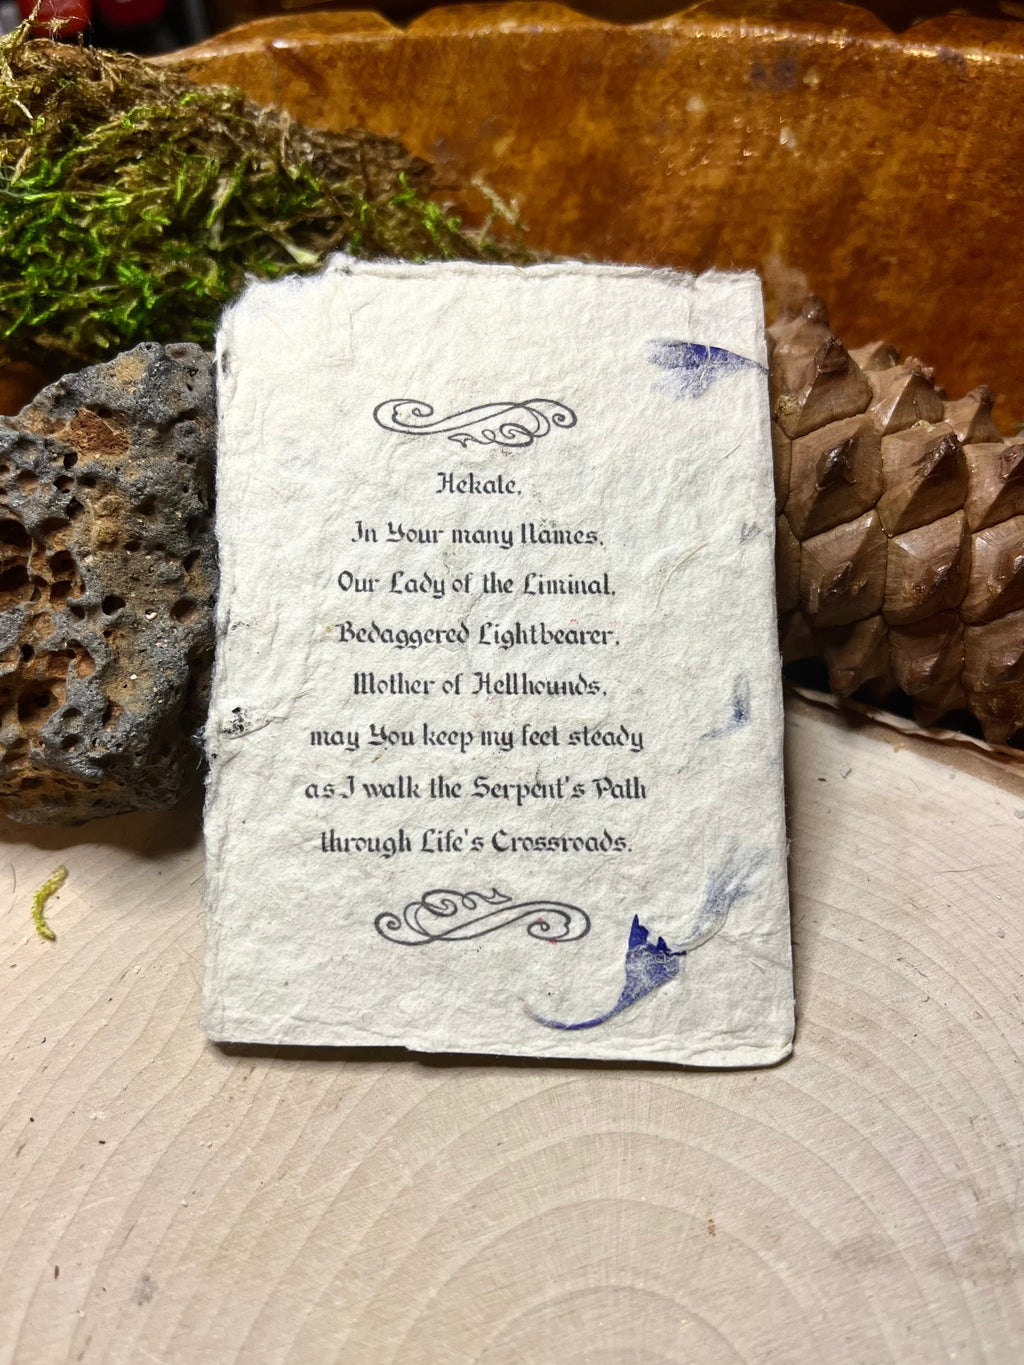 Hekate,
In Your many Names,
Our Lady of the Liminal,
Bedaggered Lightbearer,
Mother of Hellhounds,
may You keep my feet steady
as I walk the Serpent's Path
through Life's Crossroads.